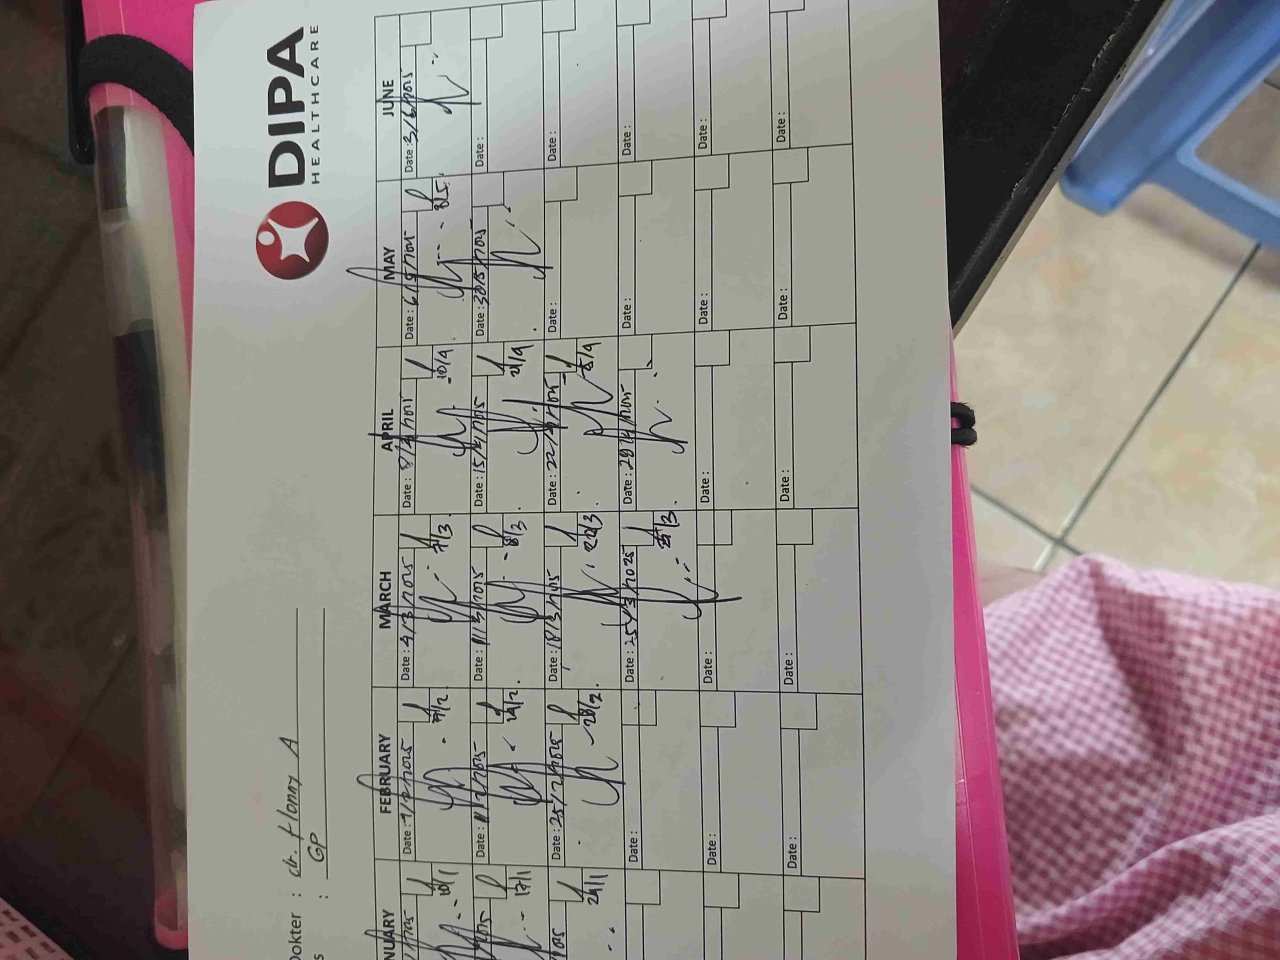 DIPA
HEALTHCARE
Dokter : dr. Honny A
s : GP
NUARY FEBRUARY MARCH APRIL MAY JUNE
Date : 4/3/2025 Date : 8/4/2025 Date : 6/5/2025 Date : 3/6/2025
10/1 7/2 7/3 10/4 8/5
Date : 11/2/2025 Date : 11/3/2025 Date : 15/4/2025 Date : 30/5/2025 Date :
17/1 14/2 21/4
Date : 25/2/2025 Date : 18/3/2025 Date : 22/4/2025 Date : Date :
24/1 28/2
Date : Date : 25/3/2025 Date : 29/4/2025 Date : Date :
Date : Date : Date : Date : Date :
Date : Date : Date : Date : Date :